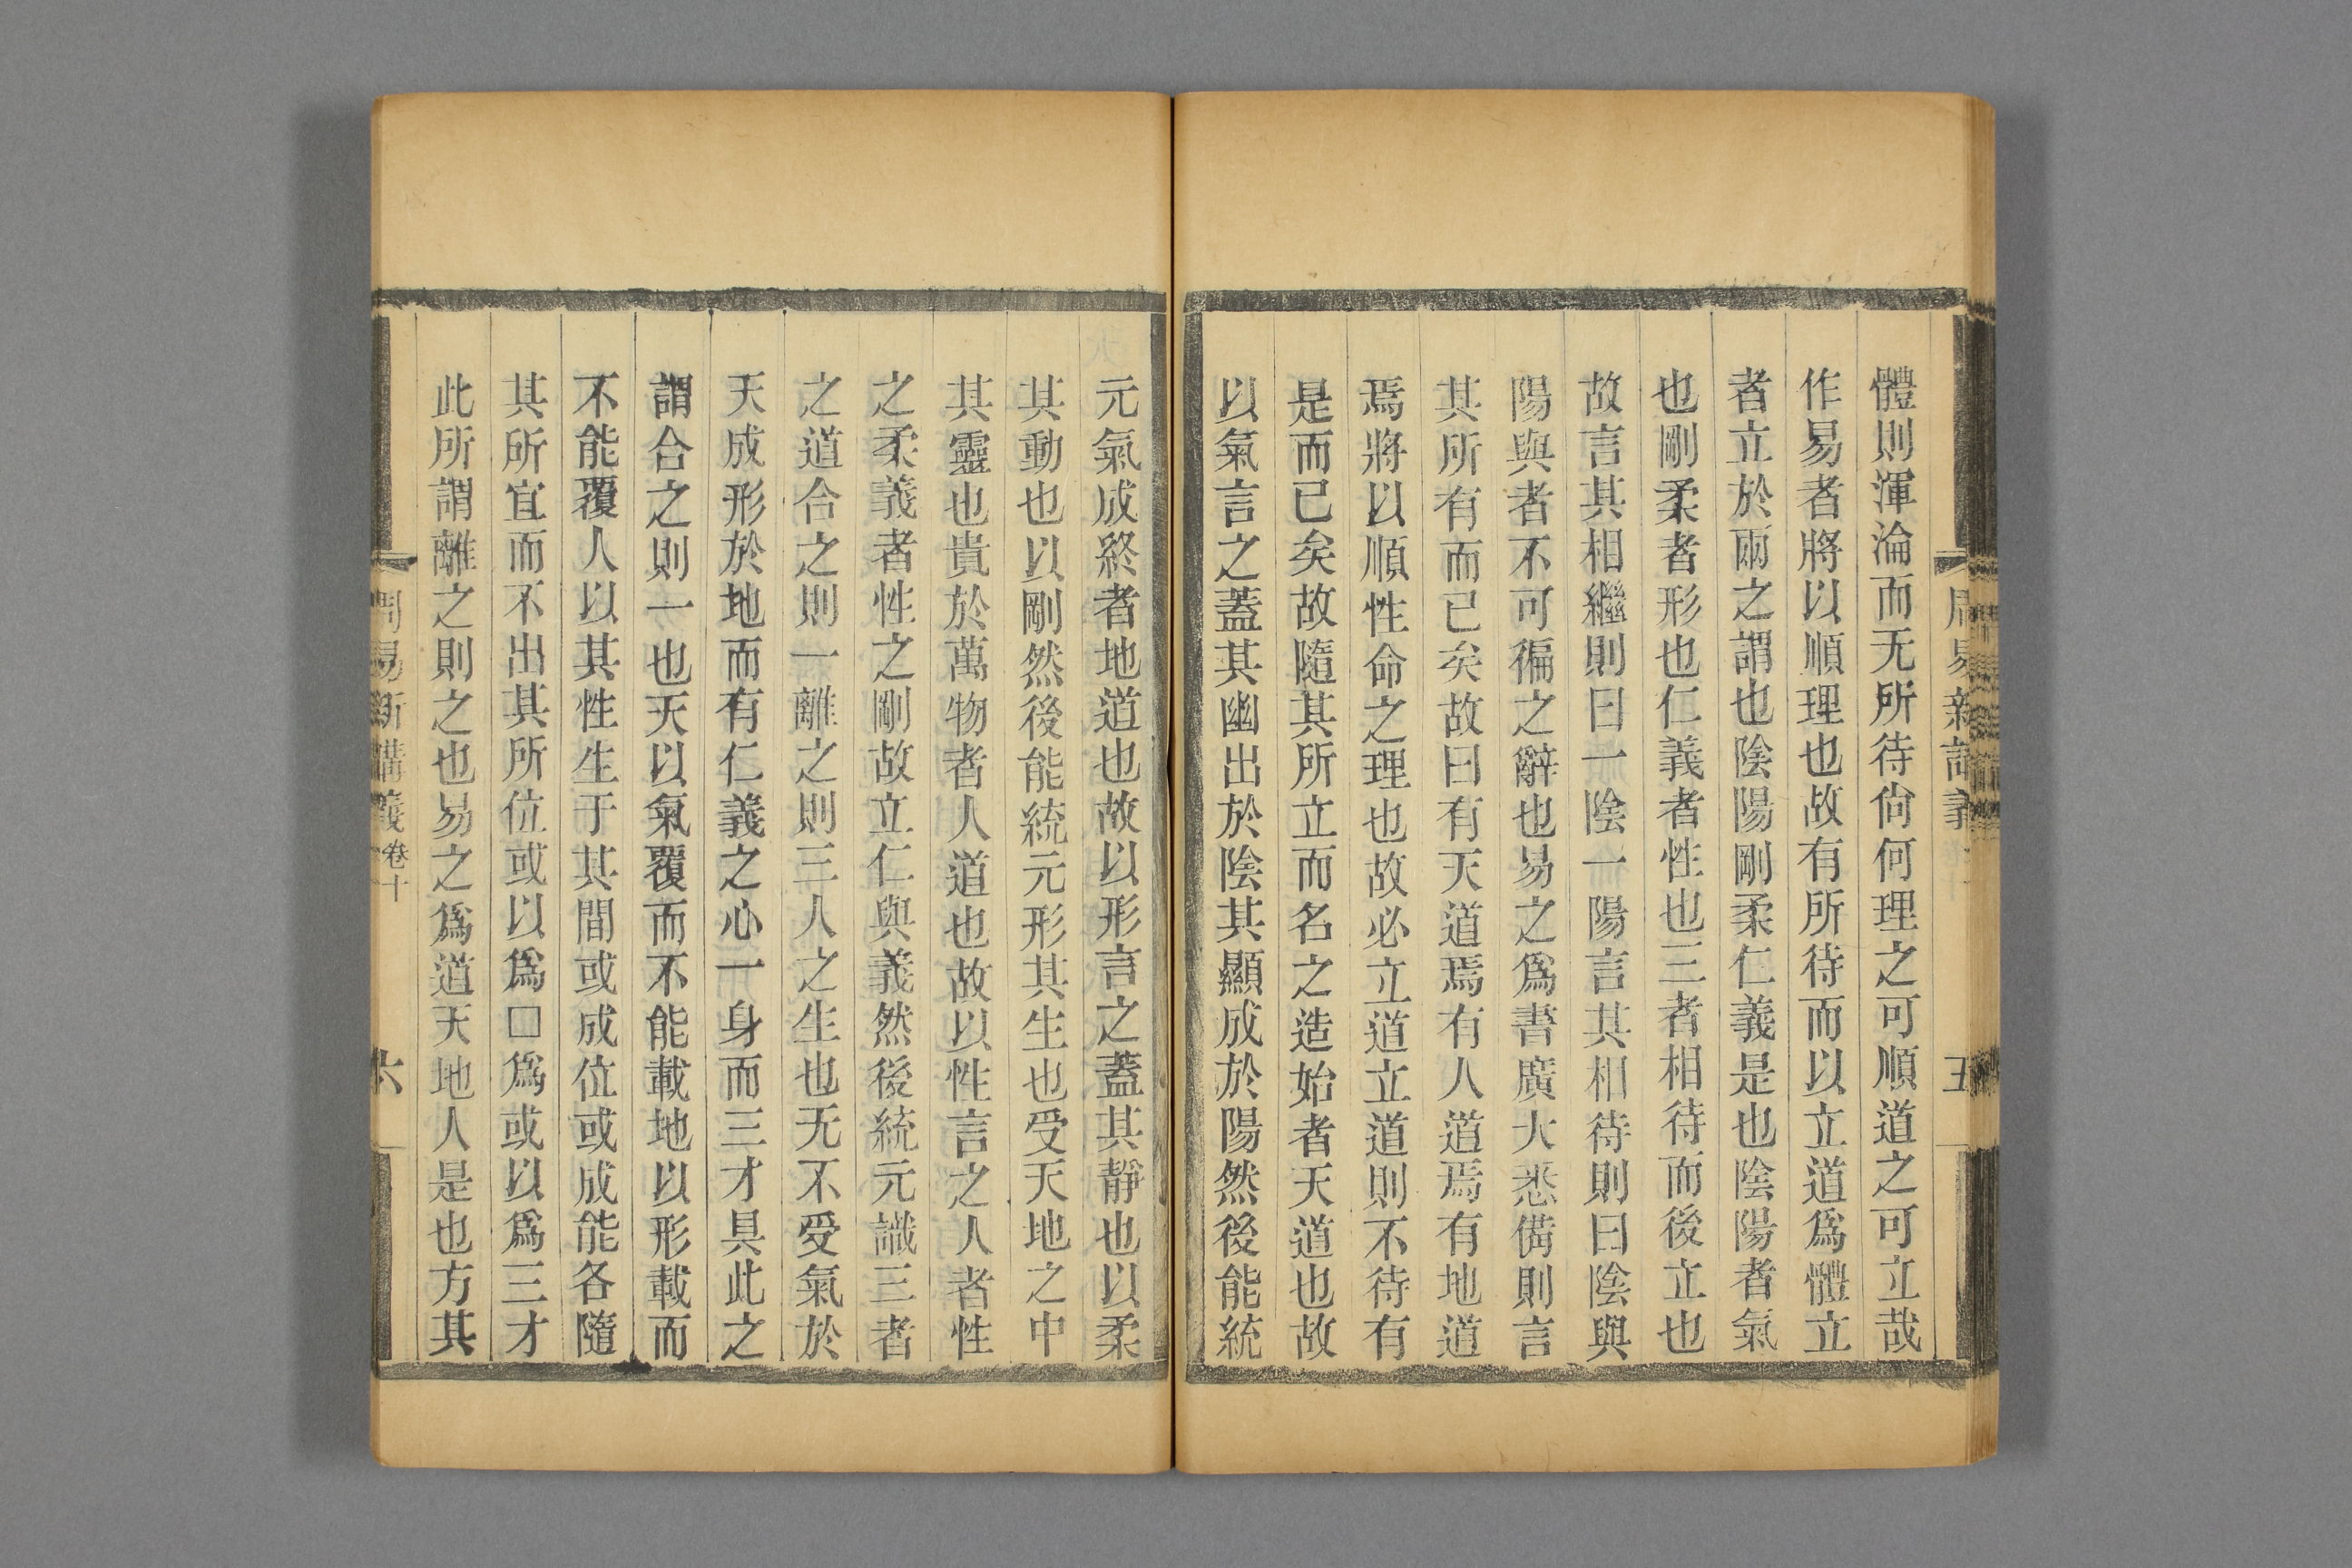 體則渾淪而无所待尙何理之可順道之可立哉
作易者將以順理也故有所待而以立道爲體立
者立於兩之謂也陰陽剛柔仁義是也陰陽者氣
也剛柔者形也仁義者性也三者相待而後立也
故言其相繼則曰一陰一陽言其相待則曰陰與
陽與者不可徧之辭也易之爲書廣大悉備則言
其所有而已矣故曰有天道焉有人道焉有地道
焉將以順性命之理也故必立道立道則不待有
是而已矣故隨其所立而名之造始者天道也故
以氣言之蓋其幽出於陰其顯成於陽然後能統
元氣成終者地道也故以形言之蓋其靜也以柔
其動也以剛然後能統元形其生也受天地之中
其靈也貴於萬物者人道也故以性言之人者性
之柔義者性之剛故立仁與義然後統元識三者
之道合之則一離之則三人之生也无不受氣於
天成形於地而有仁義之心一身而三才具此之
謂合之則一也天以氣覆而不能載地以形載而
不能覆人以其性生于其間或成位或成能各隨
其所宜而不出其所位或以爲□爲或以爲三才
此所謂離之則之也易之爲道天地人是也方其
周易新講義卷十
六
周易新講義
五